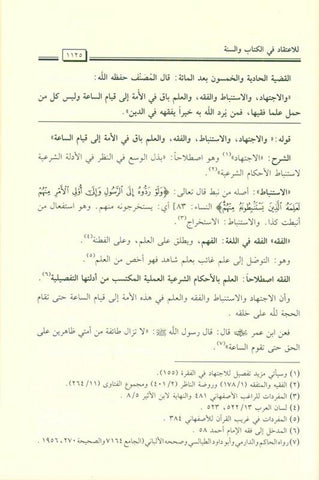 للاعتقاد في الكتاب والسنة
١١٣٥
القضية الحادية والخمسون بعد المائة: قال المُصَنِّف حفظه الله:
«والاجتهاد، والاستنباط والفقه، والعلم باق في الأمة إلى قيام الساعة وليس كل من
حمل علما فقيها، فمن يُرد الله به خيراً يفقهه في الدين».
قوله: «والاجتهاد، والاستنباط، والفقه، والعلم باق في الأمة إلى قيام الساعة»
الشرح: «الاجتهاد»(١) وهو اصطلاحاً: «بذل الوسع في النظر في الأدلة الشرعية
لاستنباط الأحكام الشرعية»(٢).
«الاستنباط»: أصله من نبط قال تعالى: ﴿وَلَوْ رَدُّوهُ إِلَى الرَّسُولِ وَإِلَىٰ أُولِي الْأَمْرِ مِنْهُمْ
لَعَلِمَهُ الَّذِينَ يَسْتَنْبِطُونَهُ مِنْهُمْ﴾ [النساء: ٨٣] أي: يستخرجونه منهم. وهو استفعال من
أنبطت كذا. والاستنباط: الاستخراج(٣).
«الفقه» الفقه في اللغة: الفهم، ويطلق على العلم، وعلى الفطنة(٤).
وهو: التوصّل إلى علم غائب بعلم شاهد فهو أخص من العلم(٥).
الفقه اصطلاحاً: العلم بالأحكام الشرعية العملية المكتسب من أدلتها التفصيلية(٦).
وأن الاجتهاد والاستنباط والفقه والعلم في هذه الأمة إلى قيام الساعة حتى تقام
الحجة لله على خلقه.
فعن ابن عمر ﷺ قال: قال رسول الله ﷺ: «لا تزال طائفة من أمتي ظاهرين على
الحق حتى تقوم الساعة»(٧).
(١) وسيأتي مزيد تفصيل للاجتهاد في الفقرة (١٥٥).
(٢) الفقيه والمتفقه (١/ ١٧٨) وروضة الناظر (٢/ ٤٠١) ومجموع الفتاوى (١١/ ٢٦٤).
(٣) المفردات للراغب الأصفهاني ٤٨١ والنهاية لابن الأثير ٥/ ٨.
(٤) لسان العرب ١٣/ ٥٢٢، ٥٢٣.
(٥) المفردات في غريب القرآن للأصفهاني ٣٨٤.
(٦) المدخل إلى فقه الإمام أحمد ٥٨.
(٧) رواه الحاكم والدارمي وأبو داود الطيالسي وصححه الألباني (الجامع ٧١٦٤ والصحيحة ٢٧٠، ١٩٥٦،